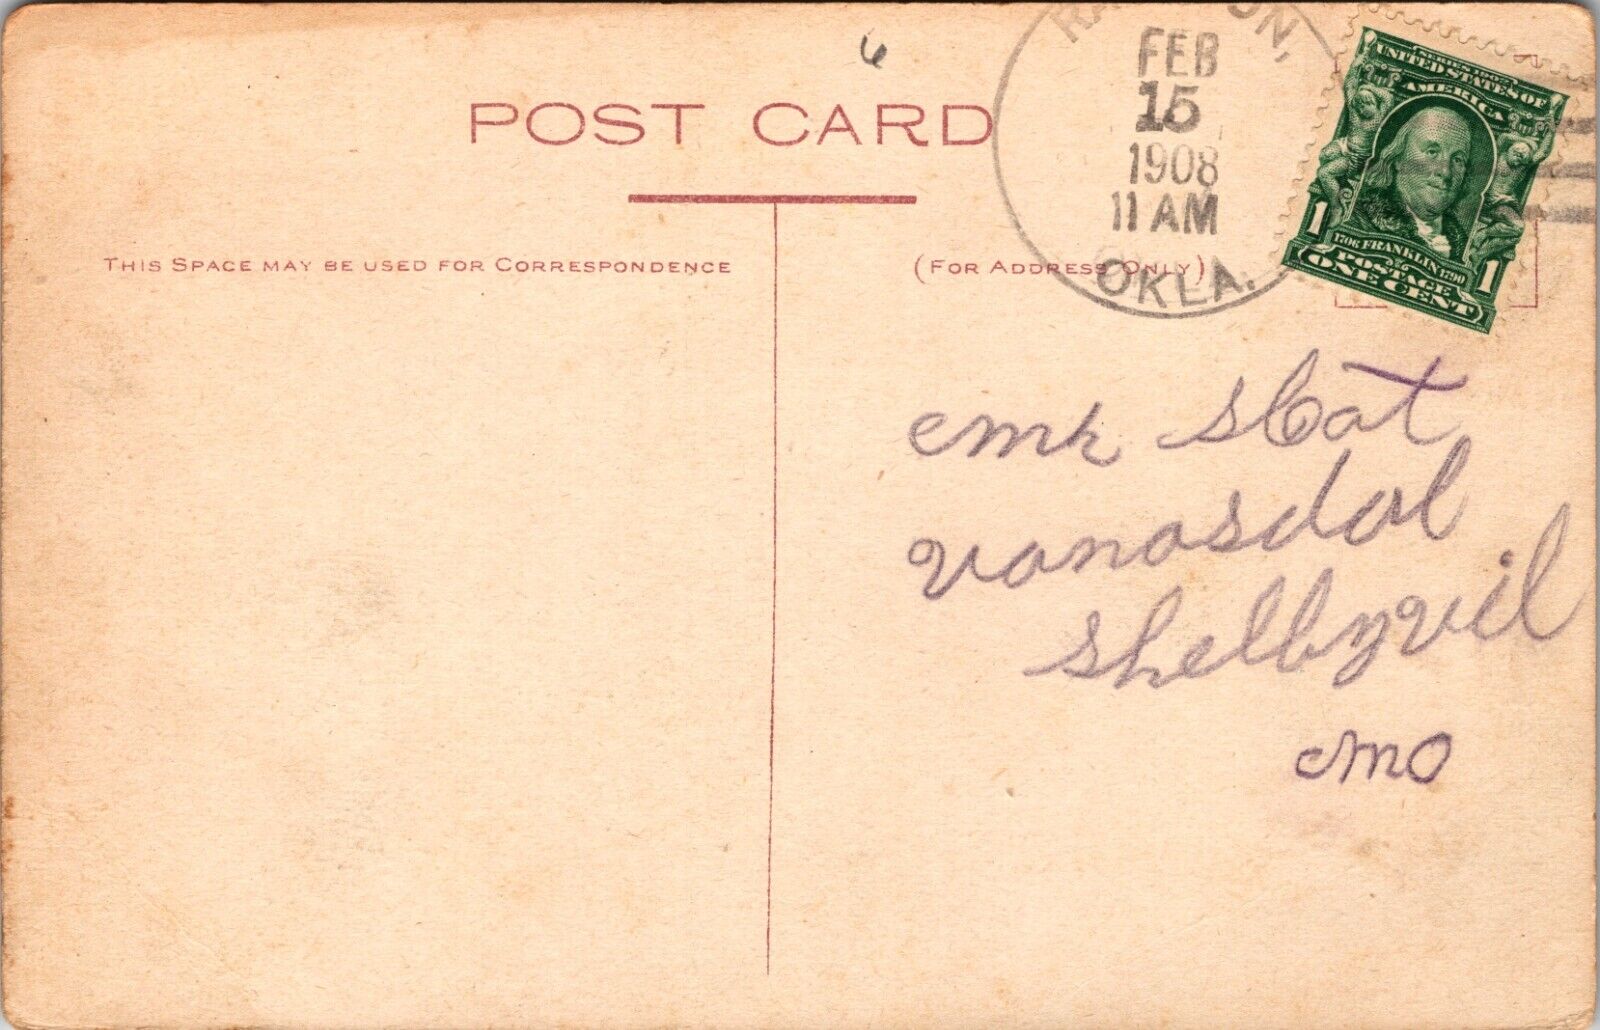 6
POST CARD
THIS SPACE MAY BE USED FOR CORRESPONDENCE
(FOR ADDRESS ONLY)
FEB
15
1908
11 AM
OKLA.
SERIES 1902
UNITED STATES OF
AMERICA
1 1
1706 FRANKLIN 1790
POSTAGE
ONE CENT
Mr
Vanasdal
Shelbyvil
Mo